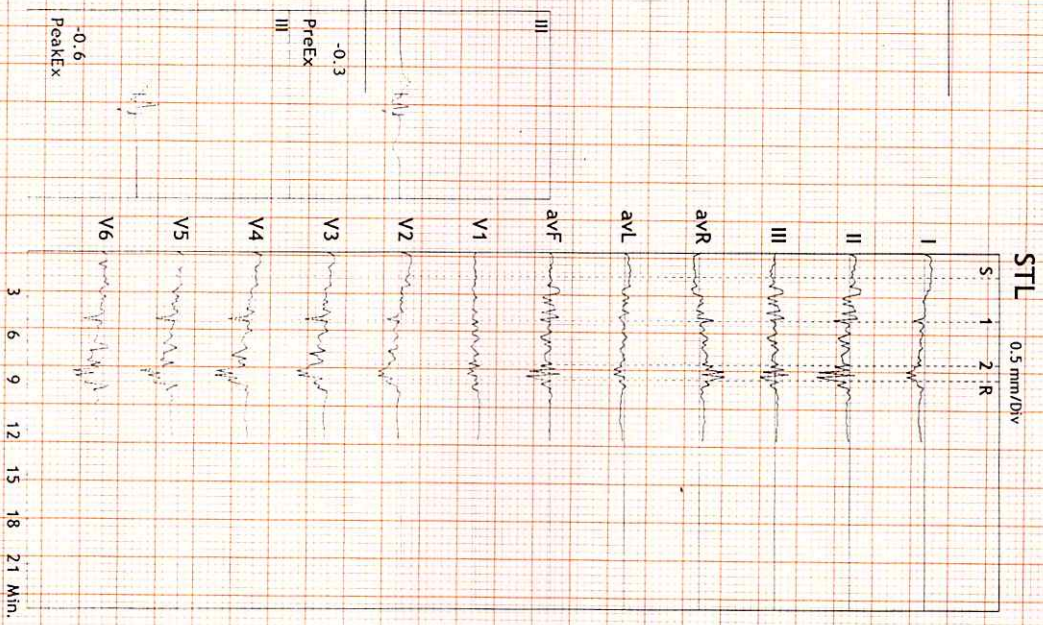 STL 0.5 mm/Div
S 1 2 R
I
II
III
avR
avL
avF
V1
V2
V3
V4
V5
V6
3 6 9 12 15 18 21 Min.
III
-0.3
PreEx
III
-0.6
PeakEx